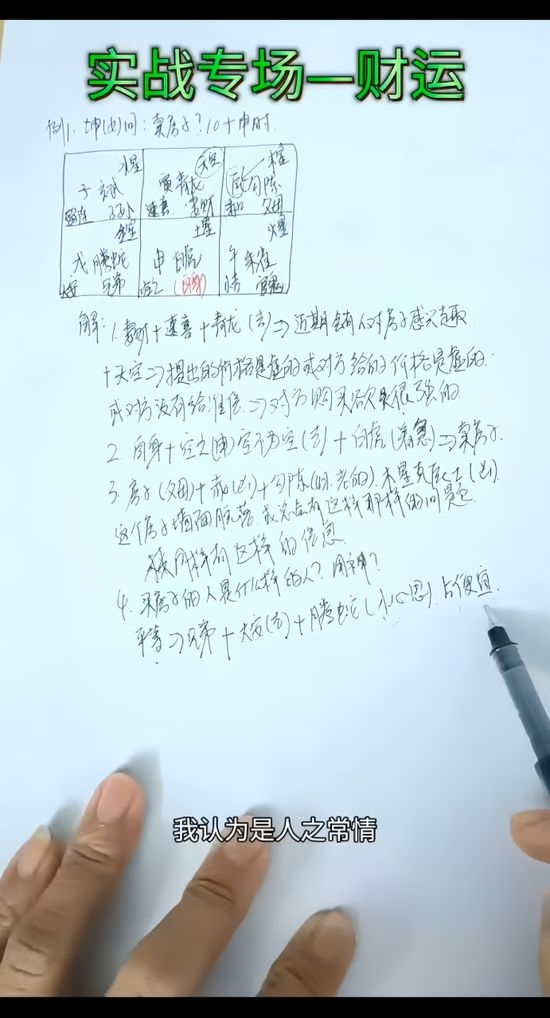 实战专场—财运
例1. 坤(女)问:卖房子?10+申时.
木星 天空 木星
子 玄武 寅青龙 勾陈
留连 子孙 速喜 妻财 赤口 父母
金星 土星 火星
戌 腾蛇 申 白虎 午 朱雀
大安 兄弟 空亡 (自身) 小吉 官鬼
解: 1. 妻财+速喜+青龙(吉)⇒近期会有人对房子感兴趣
+天空⇒提出的价格是虚的或对方给的价格是虚的.
或对方没有给准信.⇒对方购买欲是很强的
2. 自身+空亡(申)空不为空(吉)+白虎(着急)⇒卖房子.
3. 房子(父母)+赤口(凶)+勾陈(旧.老的).木星克辰土(凶)
这个房子墙面脱落.或总是有这样那样的问题
或同样有这样的信息
4. 买房子的人是什么样的人?用神?
⇒兄弟+大安(吉)+腾蛇(小心思).占便宜.
我认为是人之常情